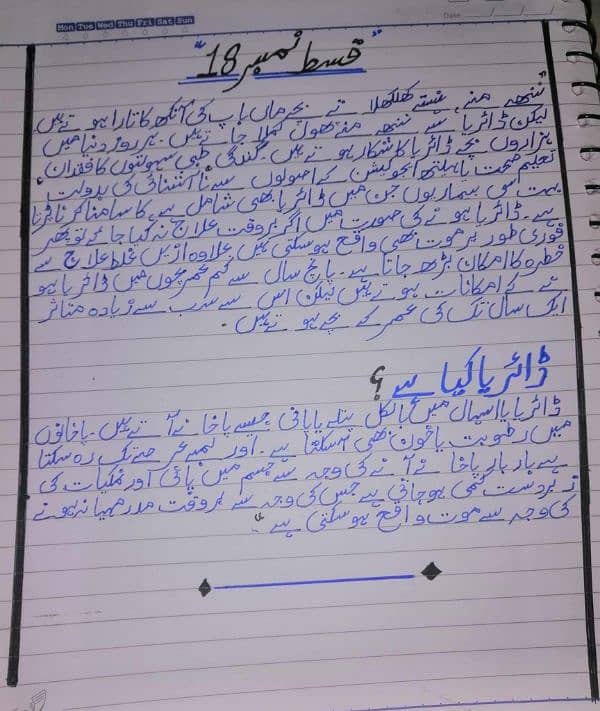 Mon Tue Wed Thu Fri Sat Sun
Date
"قسط نمبر 18"
"ننھے منے ہنستے کھلکھلاتے بچے ماں باپ کی آنکھ کا تارا ہوتے ہیں
لیکن ڈائریا سے ننھے منے پھول کملا جاتے ہیں۔ ہر روز دنیا میں
ہزاروں بچے ڈائریا کا شکار ہوتے ہیں۔ گندگی، طبی سہولتوں کا فقدان،
تعلیم صحت یا ہیلتھ ایجوکیشن کے اصولوں سے نا آشنائی کی بدولت
بہت سی بیماریوں جن میں ڈائریا بھی شامل ہے کا سامنا کرنا پڑتا
ہے۔ ڈائریا ہونے کی صورت میں اگر بروقت علاج نہ کیا جائے تو پھر
فوری طور پر موت بھی واقع ہوسکتی ہیں علاوہ ازیں غلط علاج سے
خطرہ کا امکان بڑھ جاتا ہے۔ پانچ سال سے کم عمر بچوں میں ڈائریا ہو
نے کے امکانات ہوتے ہیں لیکن اس سے سب سے زیادہ متاثر
ایک سال تک کی عمر کے بچے ہوتے ہیں۔
ڈائریا کیا ہے؟
ڈائریا یا اسہال میں بالکل پتلے یا پانی جیسے پاخانے آتے ہیں۔ پاخانوں
میں رطوبت یا خون بھی آسکتا ہے۔ اور لمبے عرصے تک رہ سکتا
ہے بار بار پاخانے آنے کی وجہ سے جسم میں پانی اور نمکیات کی
زبردست کمی ہوجاتی ہے جس کی وجہ سے بروقت مدد مہیا نہ ہونے
کی وجہ سے موت واقع ہوسکتی ہے"۔